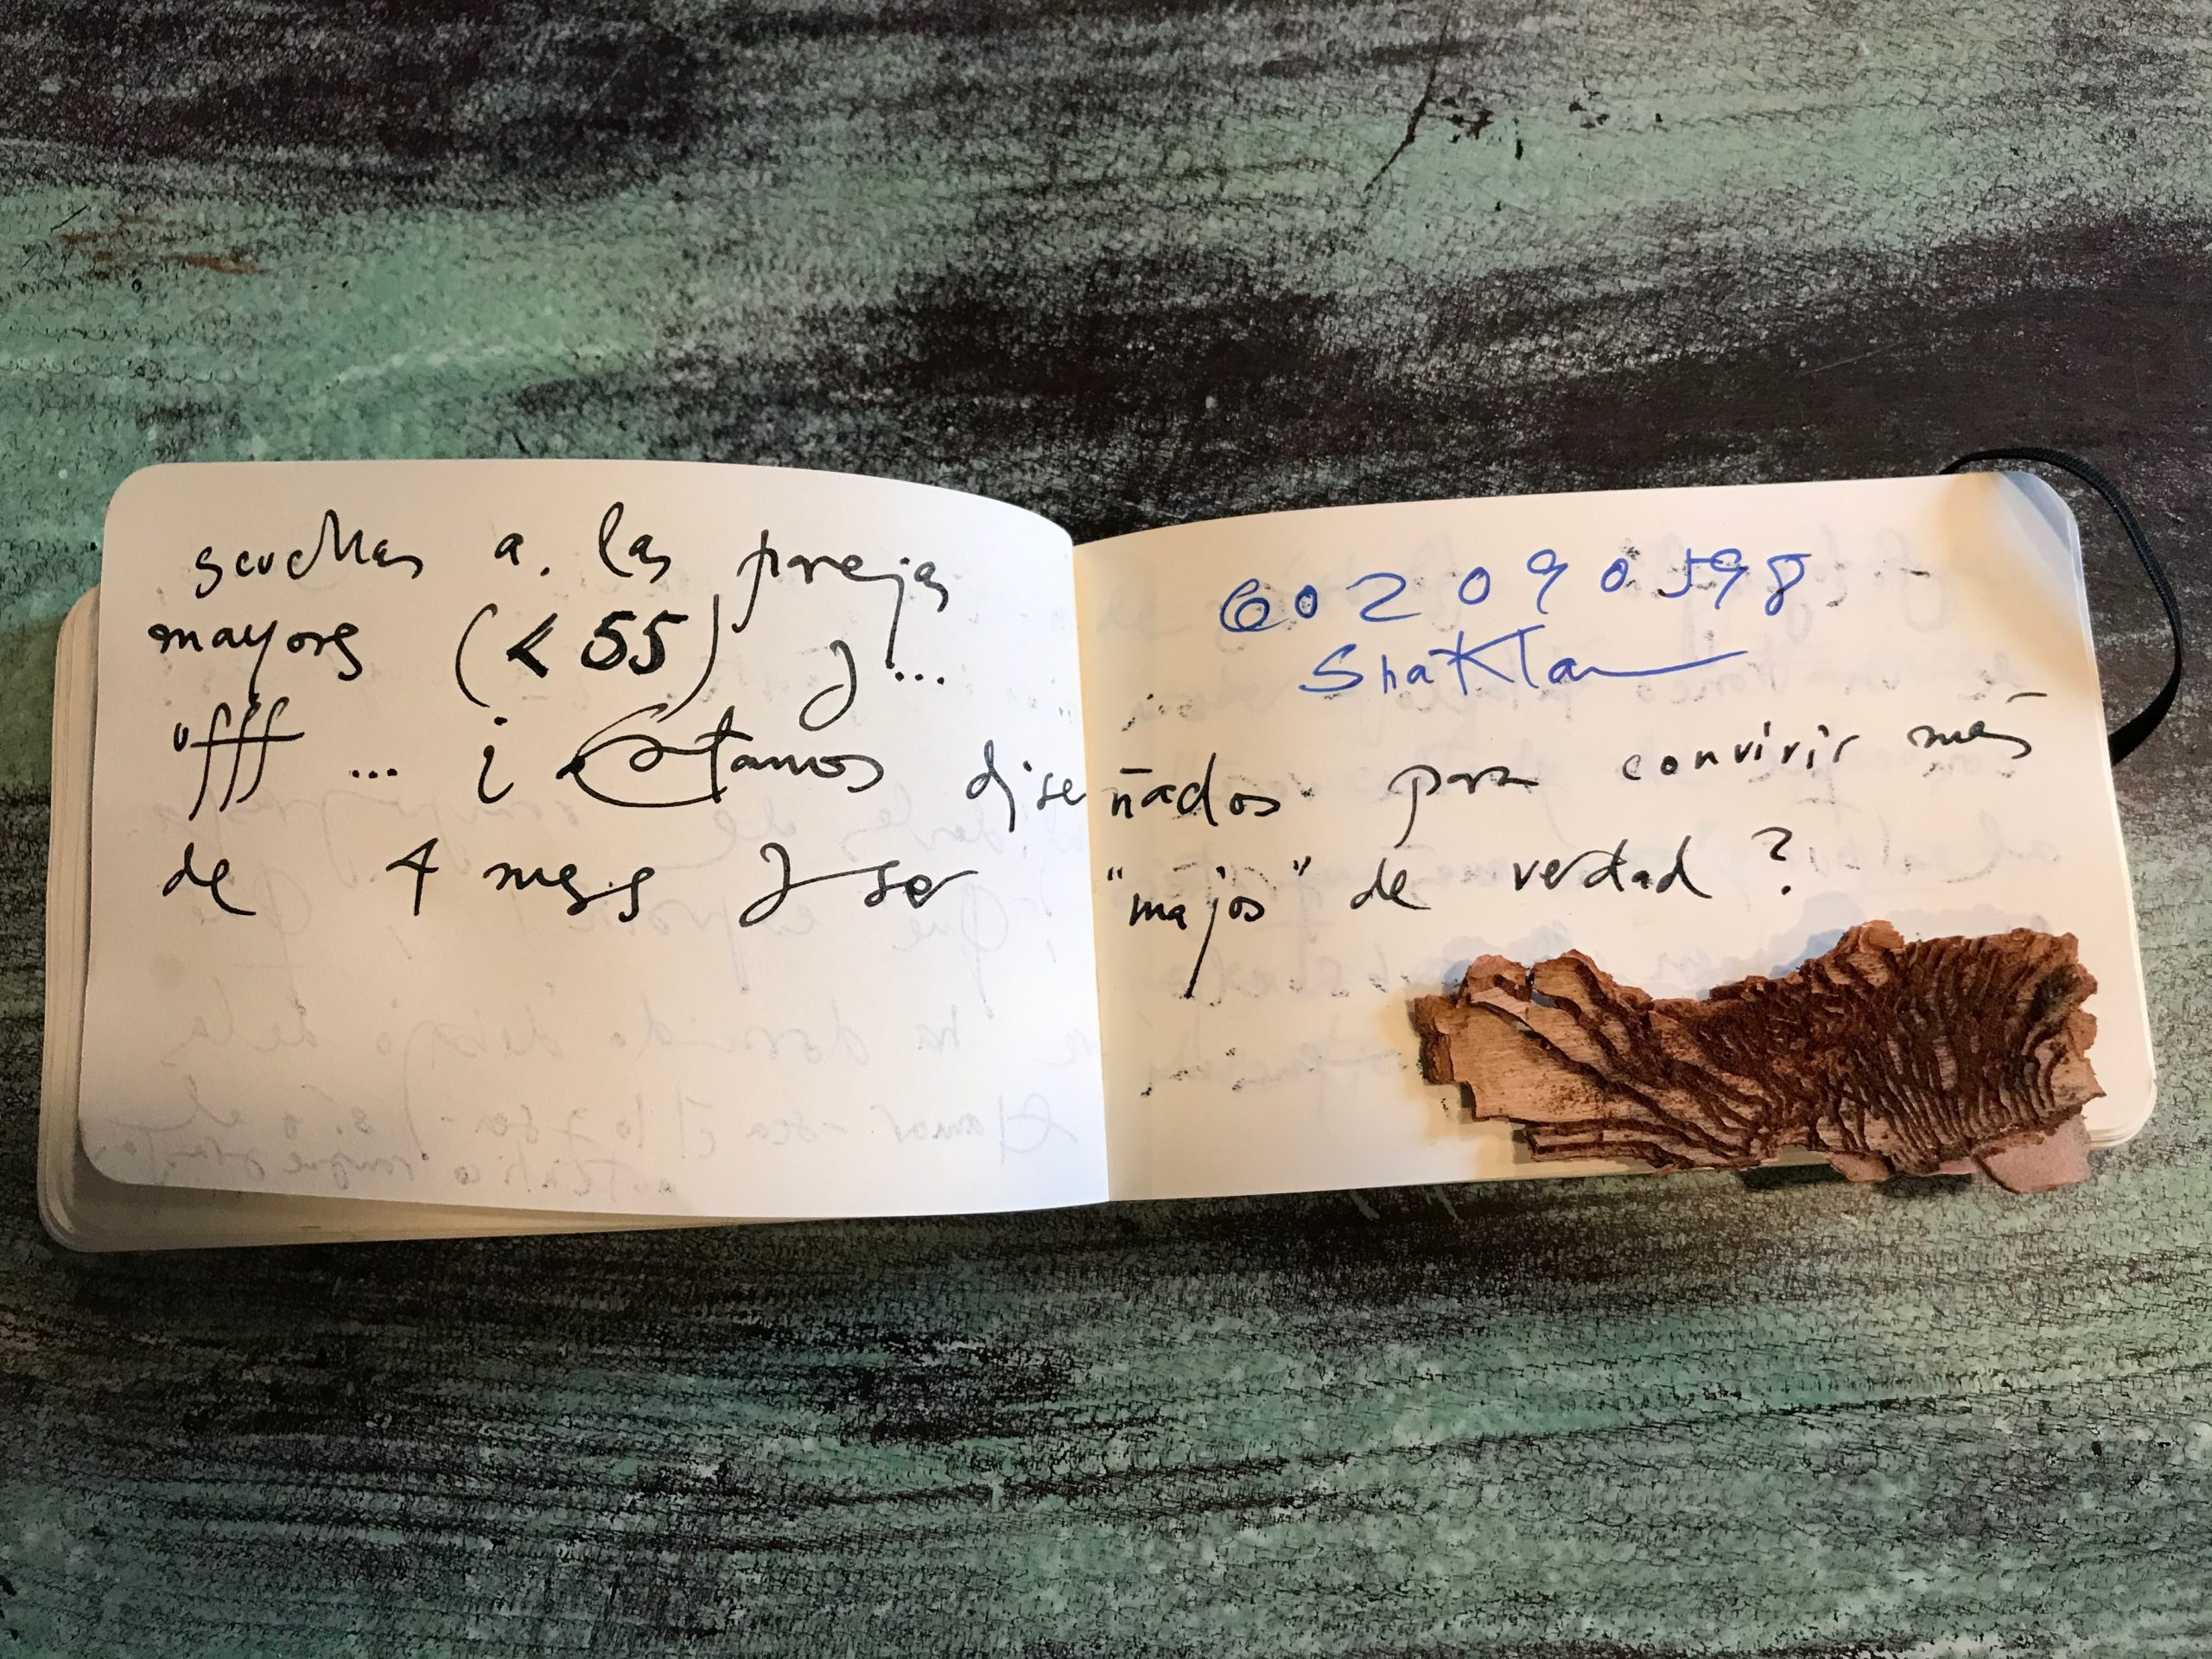 scuchas a las parejas
mayores (< 55) y...
uffff ... ¿Estamos diseñados para convivir más
de 4 meses y ser "majos" de verdad?
602090598
Shakla